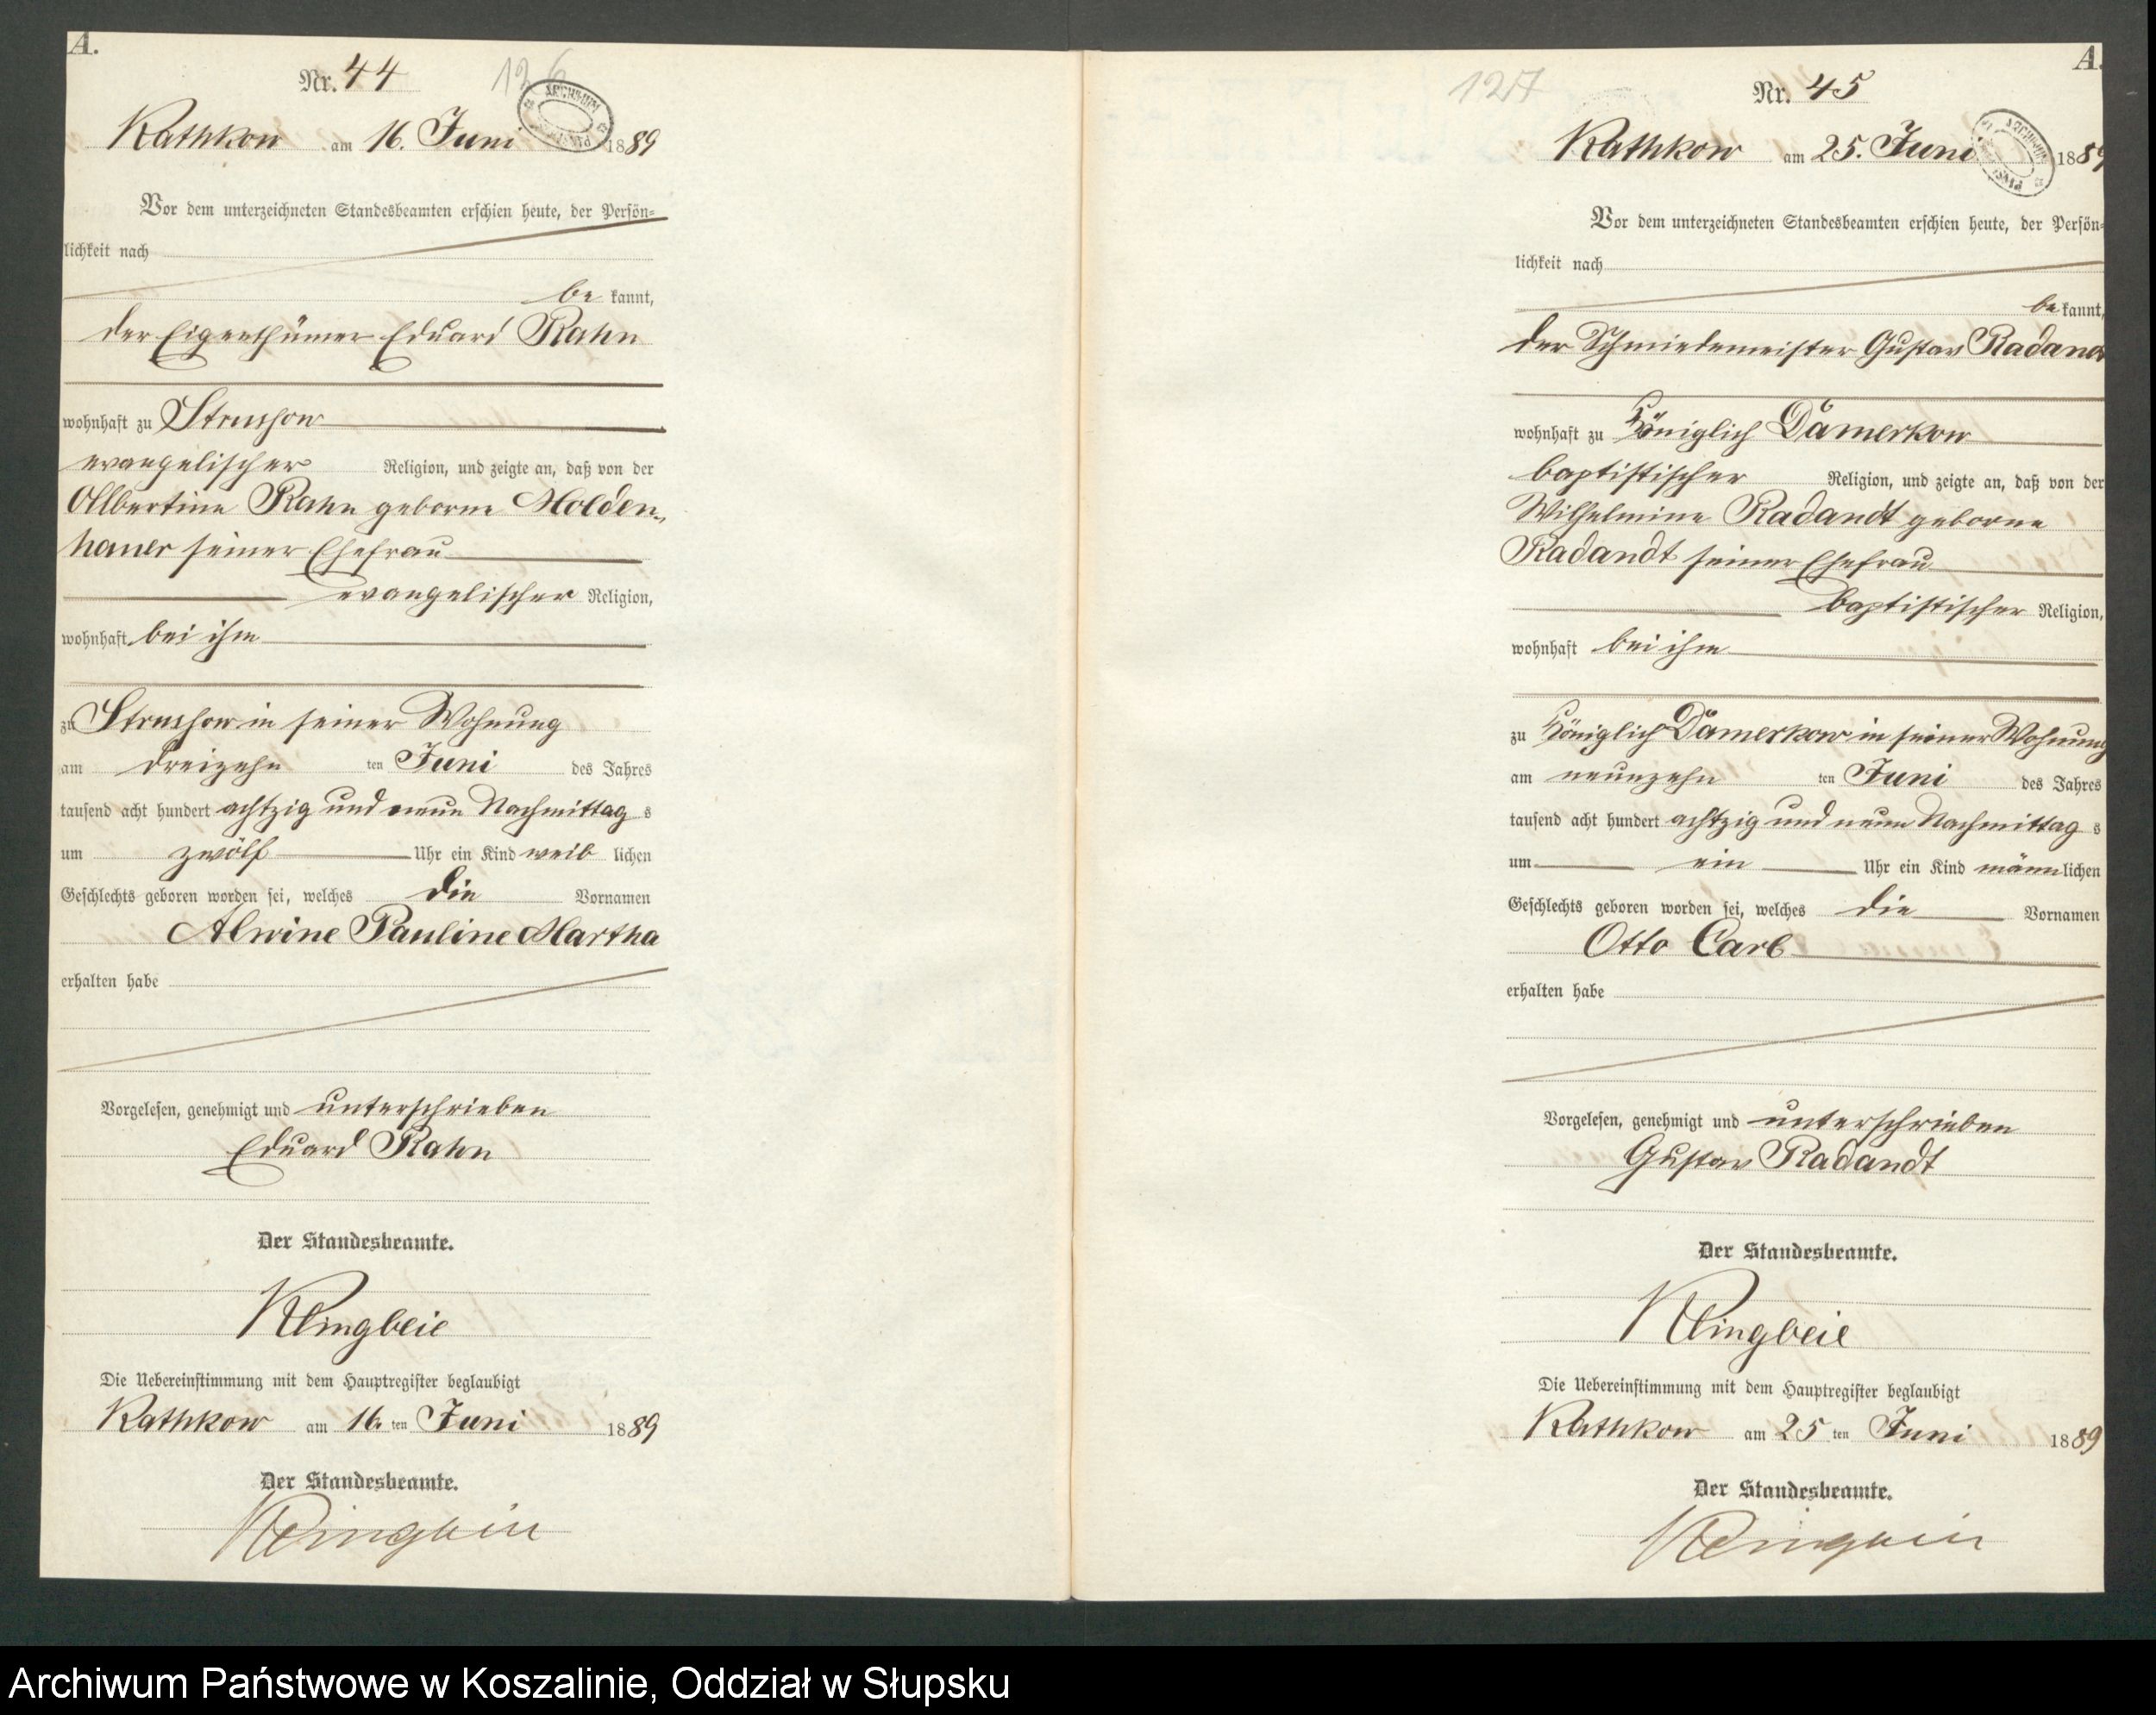 A.
Nr. 44
126
ARCHIWUM
Rathkow am 16. Juni 1889
Vor dem unterzeichneten Standesbeamten erschien heute, der Persön=
lichkeit nach
be kannt,
der Eigenthümer Eduard Rahn
wohnhaft zu Struschow
evangelischer Religion, und zeigte an, daß von der
Albertine Rahn geborne Molden-
hauer seiner Ehefrau
evangelischer Religion,
wohnhaft bei ihm
zu Struschow in seiner Wohnung
am dreizehn ten Juni des Jahres
tausend acht hundert achtzig und neun Nachmittag s
um zwölf Uhr ein Kind weib lichen
Geschlechts geboren worden sei, welches die Vornamen
Alwine Pauline Martha
erhalten habe
Vorgelesen, genehmigt und unterschrieben
Eduard Rahn
Der Standesbeamte.
Klingbeil
Die Uebereinstimmung mit dem Hauptregister beglaubigt
Rathkow am 16 ten Juni 1889
Der Standesbeamte.
Klingbeil
A.
127
Nr. 45
ARCHIWUM
Rathkow am 25. Juni 1889
Vor dem unterzeichneten Standesbeamten erschien heute, der Persön=
lichkeit nach
be kannt,
der Schmiedemeister Gustav Radand
wohnhaft zu Königlich Damerkow
baptistischer Religion, und zeigte an, daß von der
Wilhelmine Radandt geborne
Radandt seiner Ehefrau
baptistischer Religion,
wohnhaft bei ihm
zu Königlich Damerkow in seiner Wohnung
am neunzehn ten Juni des Jahres
tausend acht hundert achtzig und neun Nachmittag s
um ein Uhr ein Kind männ lichen
Geschlechts geboren worden sei, welches die Vornamen
Otto Carl
erhalten habe
Vorgelesen, genehmigt und unterschrieben
Gustav Radandt
Der Standesbeamte.
Klingbeil
Die Uebereinstimmung mit dem Hauptregister beglaubigt
Rathkow am 25 ten Juni 1889
Der Standesbeamte.
Klingbeil
Archiwum Państwowe w Koszalinie, Oddział w Słupsku